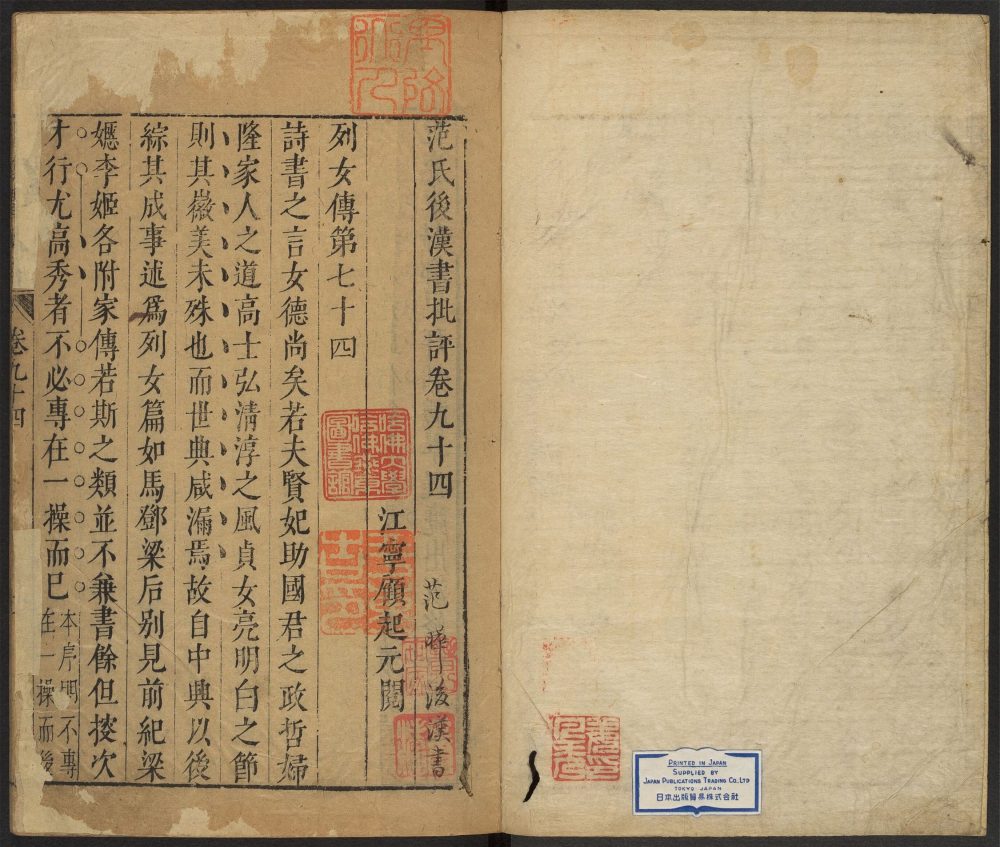 范氏後漢書批評卷九十四
范曄後漢書
江寧顧起元閱
列女傳第七十四
詩書之言女德尚矣若夫賢妃助國君之政哲婦
隆家人之道高士弘清淳之風貞女亮明白之節
則其徽美未殊也而世典咸漏焉故自中興以後
綜其成事述爲列女篇如馬鄧梁后別見前紀梁
嫕李姬各附家傳若斯之類並不兼書餘但㨿次
才行尤高秀者不必專在一操而已
本序明不專
在一操而後
卷九十四
哈佛大學
哈佛燕京
圖書館
PRINTED IN JAPAN
SUPPLIED BY
JAPAN PUBLICATIONS TRADING CO., LTD
TOKYO JAPAN
日本出版貿易株式会社